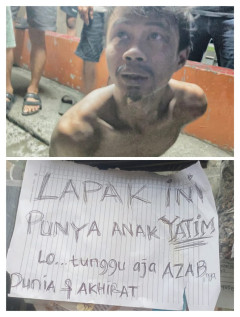 LAPAK INI
PUNYA ANAK YATIM
Lo... tunggu aja AZABnya
Dunia & AKHIRAT